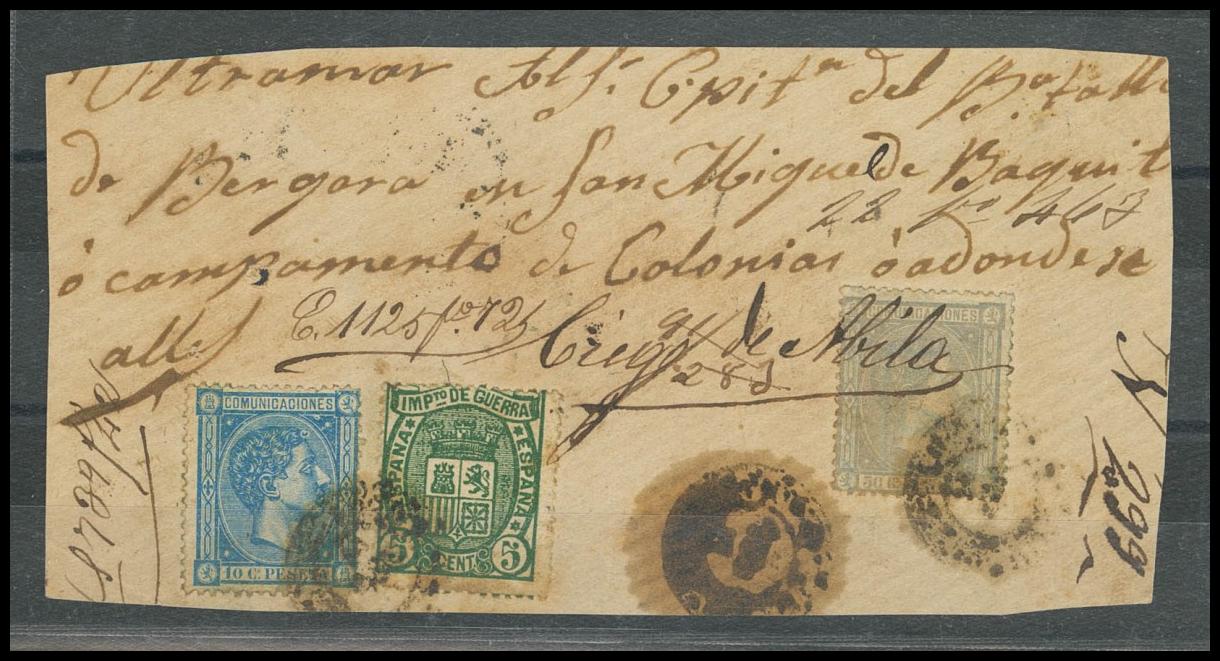 Ultramar Alf. Cpitn del Batall
de Bergara en San Miguel de Baquit
22 fo 463
ó campamento de Colonias ó adonde se
alle
E. 1125 fo. 725
Ciego de Abila
283
COMUNICACIONES
10 C. PESETA
IMPTO DE GUERRA
ESPAÑA
ESPAÑA
5 CENT 5
COMUNICACIONES
50 C. PESETA